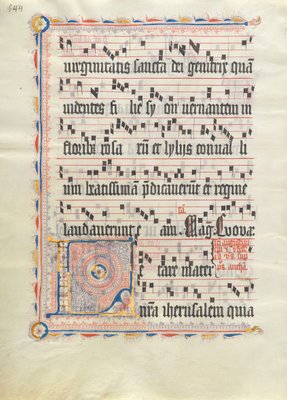 virginitatis sancta dei genitrix quā
videntes fi lie sy on vernantem in
floribꝰ rosa rū et lylys conual li
um beatissimā p̄dicauerunt et regine
laudauerunt e am. Mag. Euouae
e tare mater
nr̄a iherusalem quia